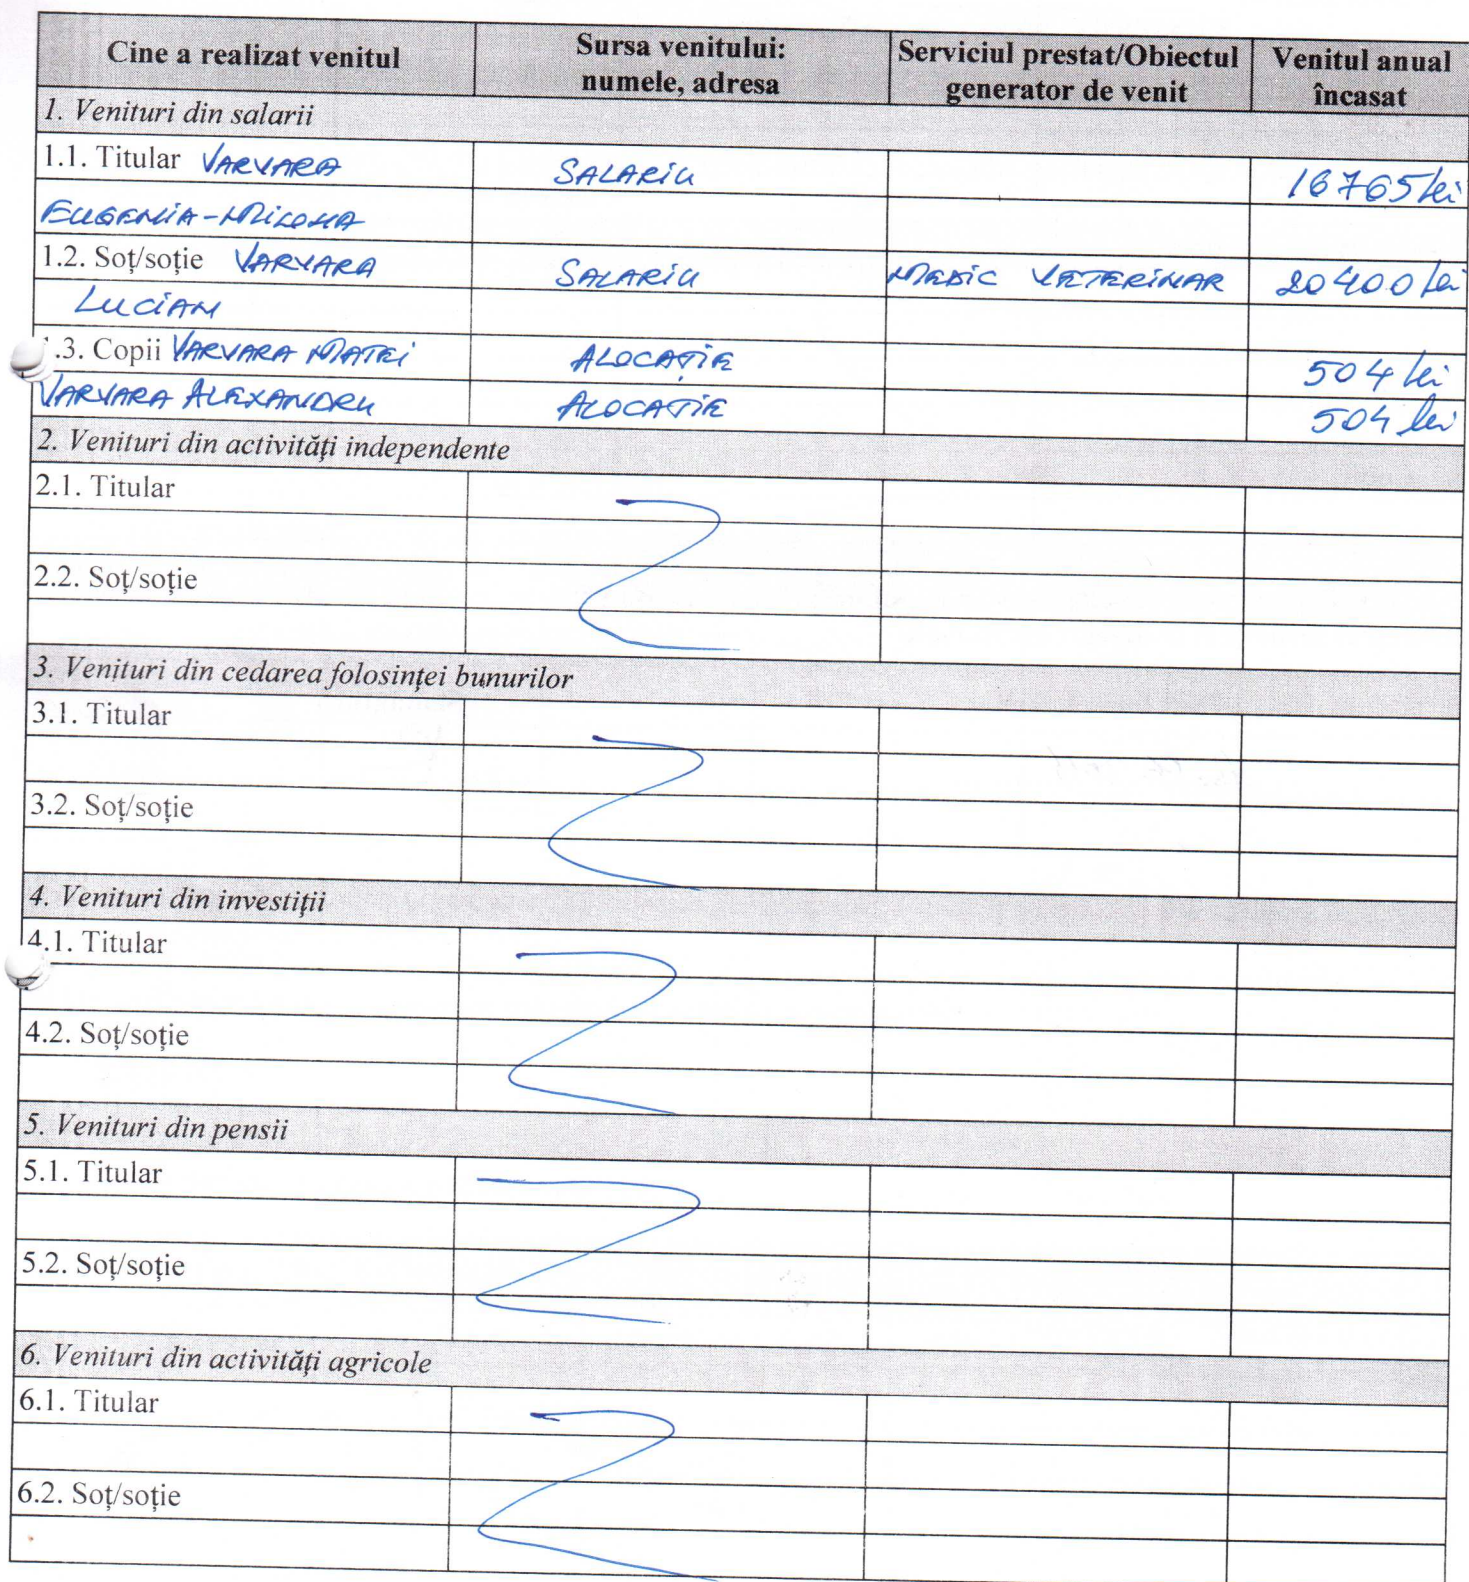 Cine a realizat venitul Sursa venitului: numele, adresa Serviciul prestat/Obiectul generator de venit Venitul anual încasat
1. Venituri din salarii
1.1. Titular VARVARA SALARIU 16765 lei
EUGENIA-MILONA
1.2. Soț/soție VARVARA SALARIU MEDIC VETERINAR 20400 lei
LUCIAN
1.3. Copii VARVARA MATEI ALOCAȚIE 504 lei
VARVARA ALEXANDRU ALOCAȚIE 504 lei
2. Venituri din activități independente
2.1. Titular
2.2. Soț/soție
3. Venituri din cedarea folosinței bunurilor
3.1. Titular
3.2. Soț/soție
4. Venituri din investiții
4.1. Titular
4.2. Soț/soție
5. Venituri din pensii
5.1. Titular
5.2. Soț/soție
6. Venituri din activități agricole
6.1. Titular
6.2. Soț/soție